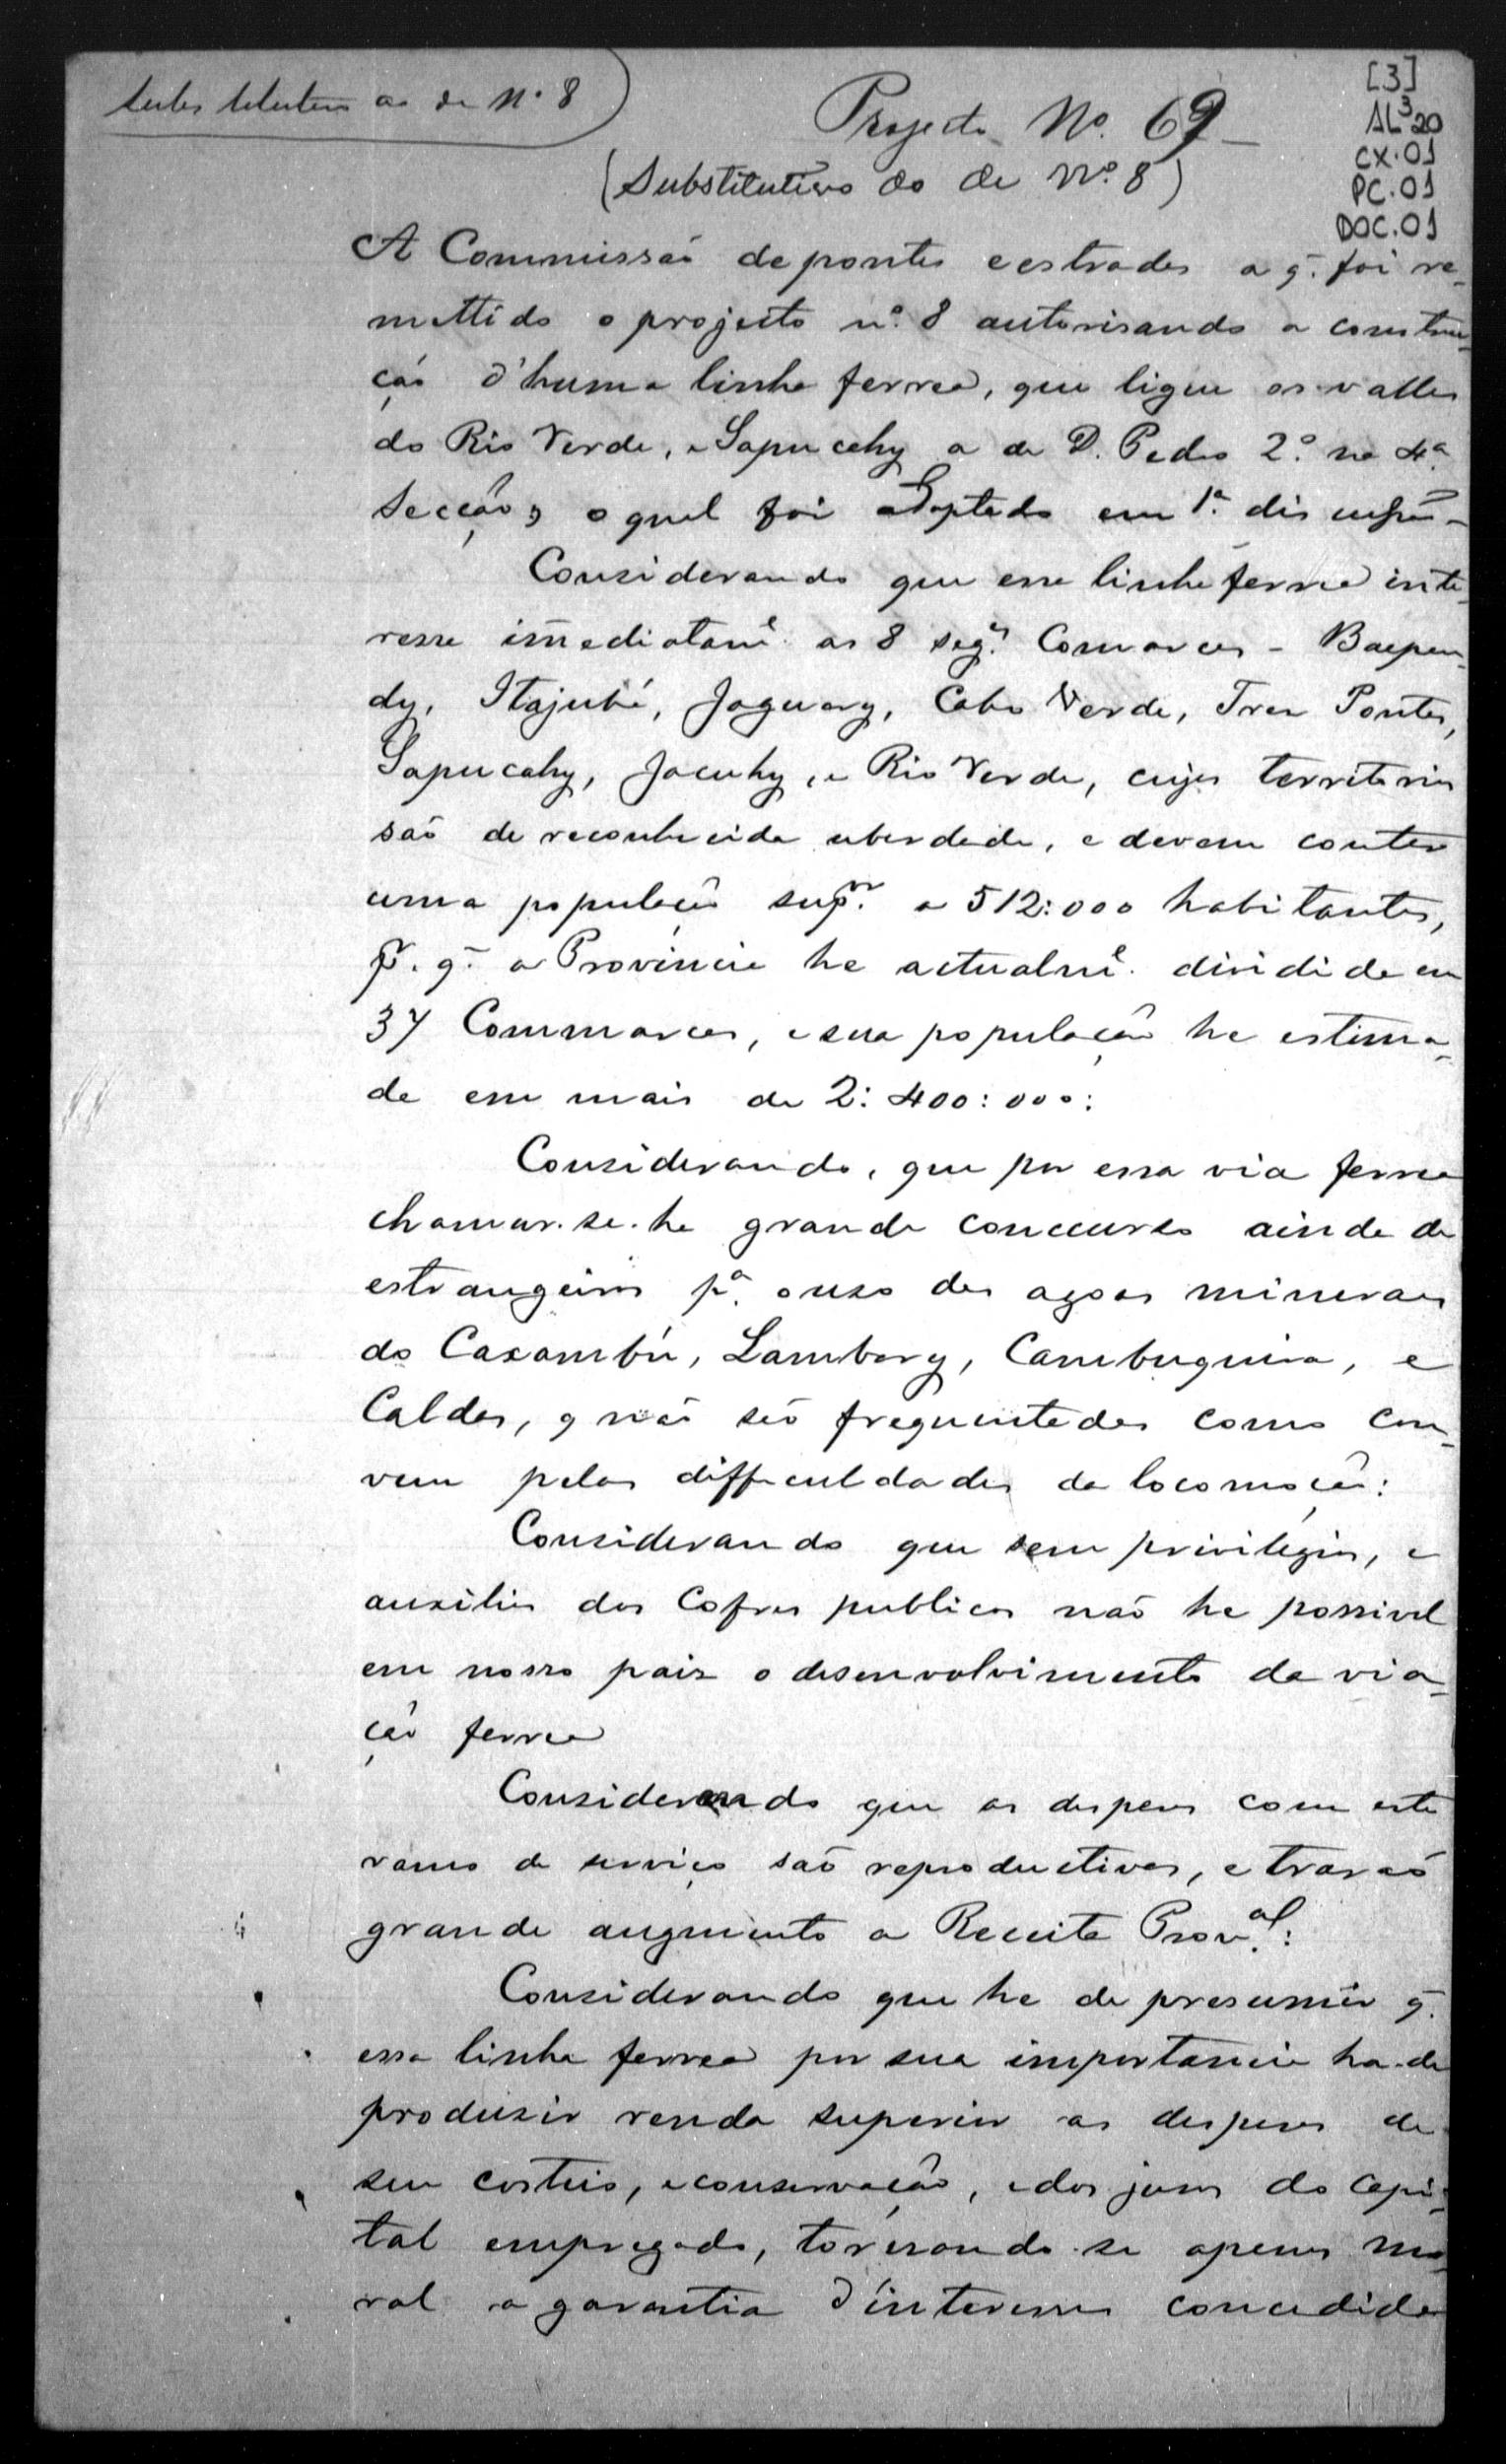 Substitutivo ao de Nº 8
[3]
AL³20
CX.01
PC.01
DOC.01
Projecto Nº. 69
(Substitutivo ao de Nº. 8)
A Commissaõ de pontes e estradas a q̃. foi re-
mettido o projecto nº. 8 autorisando a constru-
çaõ d'huma linha ferrea, que ligue os valles
do Rio Verde, e Sapucahy a de D. Pedro 2º. na 4ª.
Secção, o qual foi adoptado em 1ª. discussaõ -
Considerando que essa linha ferrea inte-
ressa im̃ediatamᵉ. as 8 segᵗᵉˢ. Comarcas - Baepen-
dy, Itajubá, Jaguary, Cabo Verde, Tres Pontas,
Sapucahy, Jacuhy, e Rio Verde, cujos territorios
saõ de reconhecida uberdade, e devem conter
uma populaçaõ supᵒʳ. a 512:000 habitantes,
p. q̃. a Provincia he actualmᵉ. dividida em
37 Commarcas, e sua populaçaõ he estima-
da em mais de 2:400:000:
Considerando, que por essa via ferrea
chamar-se-ha grande concurso ainda de
estrangeiros pª. o uso das agoas mineraes
do Caxambú, Lambary, Cambuquira, e
Caldas, q naõ saõ frequentadas como con-
vem pelas difficuldades da locomoçaõ:
Considerando que sem privilegios, e
auxilios dos Cofres publicos naõ he possivel
em nosso paiz o desenvolvimento da via-
çaõ ferrea
Considerando que as despesas com este
ramo de serviço saõ reproductivas, e traraõ
grande augmento a Receita Provᵃˡ.:
Considerando que he de presumir q̃.
essa linha ferrea por sua importancia ha-de
produzir renda superior as despesas de
seu custeio, e conservaçaõ, e dos juros do capi-
tal empregado, tornando-se apenas mo-
ral a garantia d'interesses concedida